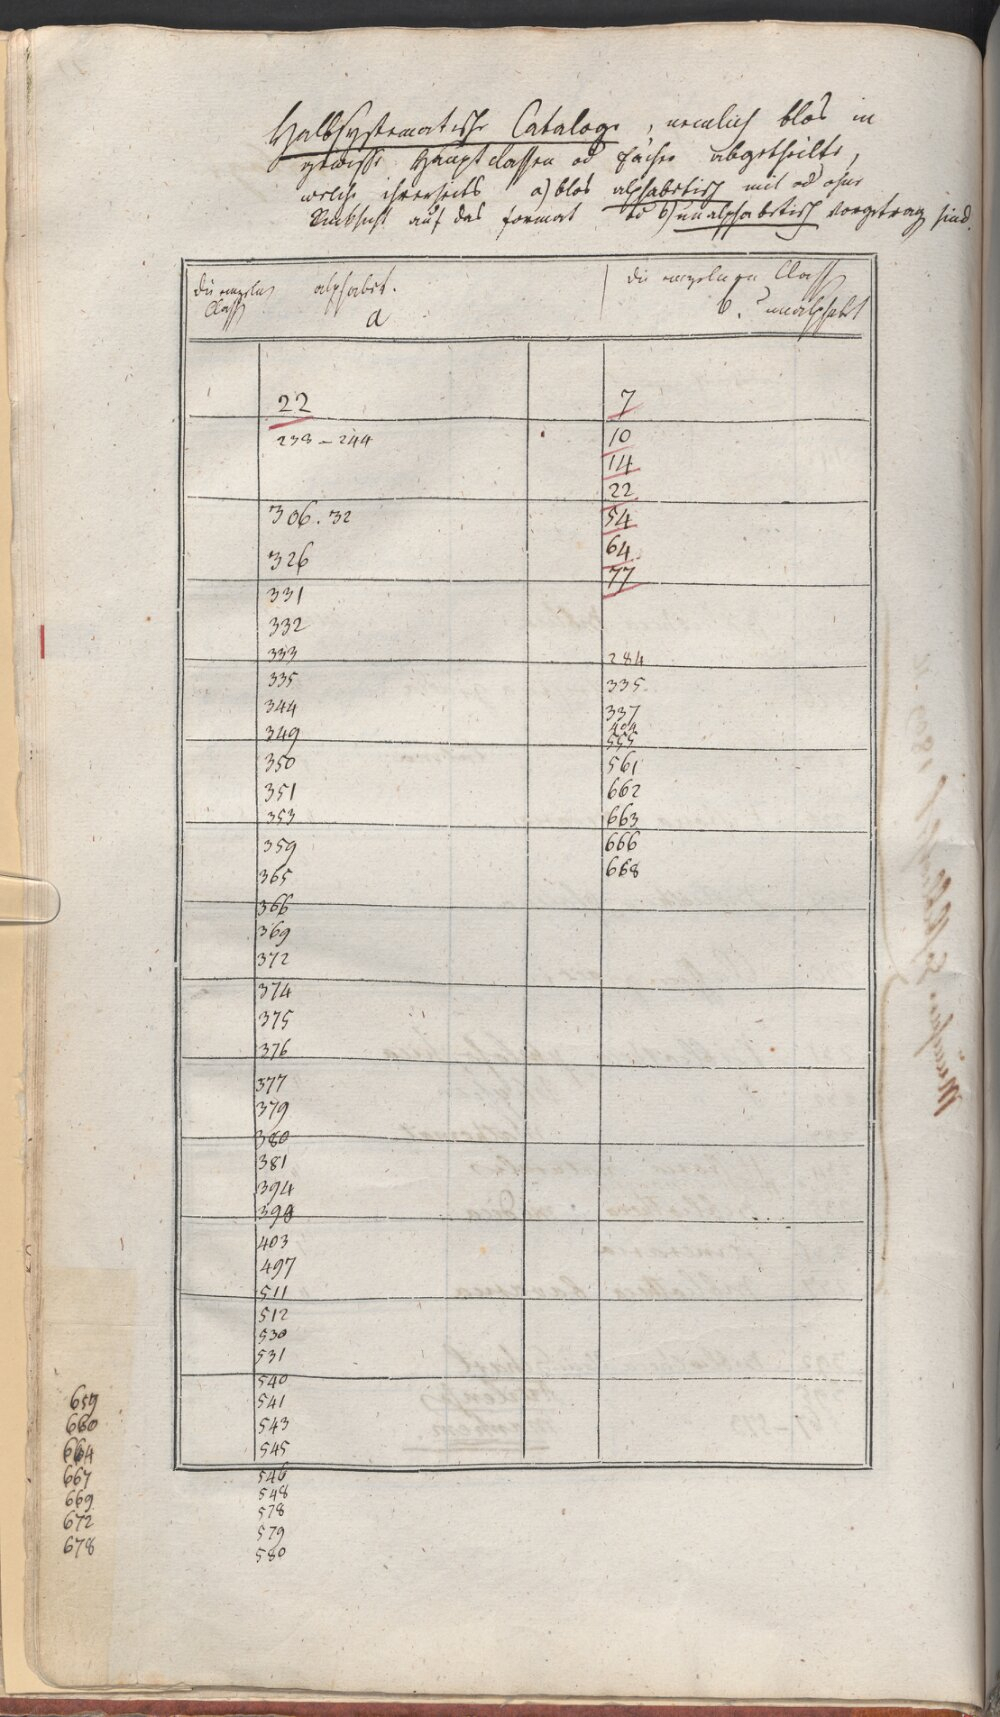 Halbsystematische Cataloge, nemlich blos in
gewisse Hauptclassen od Fächer abgetheilte,
welche ihrerseits a) blos alphabetisch mit od ohne
Rücksicht auf das Format od b) unalphabetisch vorgetragen sind.
die einzelnen alphabet.
Classen a
die einzelnen Classen
b. unalphabet
22
238-244
306.32
326
331
332
333
335
344
349
350
351
353
359
365
366
369
372
374
375
376
377
379
380
381
394
398
403
497
511
512
530
531
540
541
543
545
546
548
578
579
580
7
10
14
22
54
64
77
284
335
337
404
555
561
662
663
666
668
659
660
664
667
669
672
678